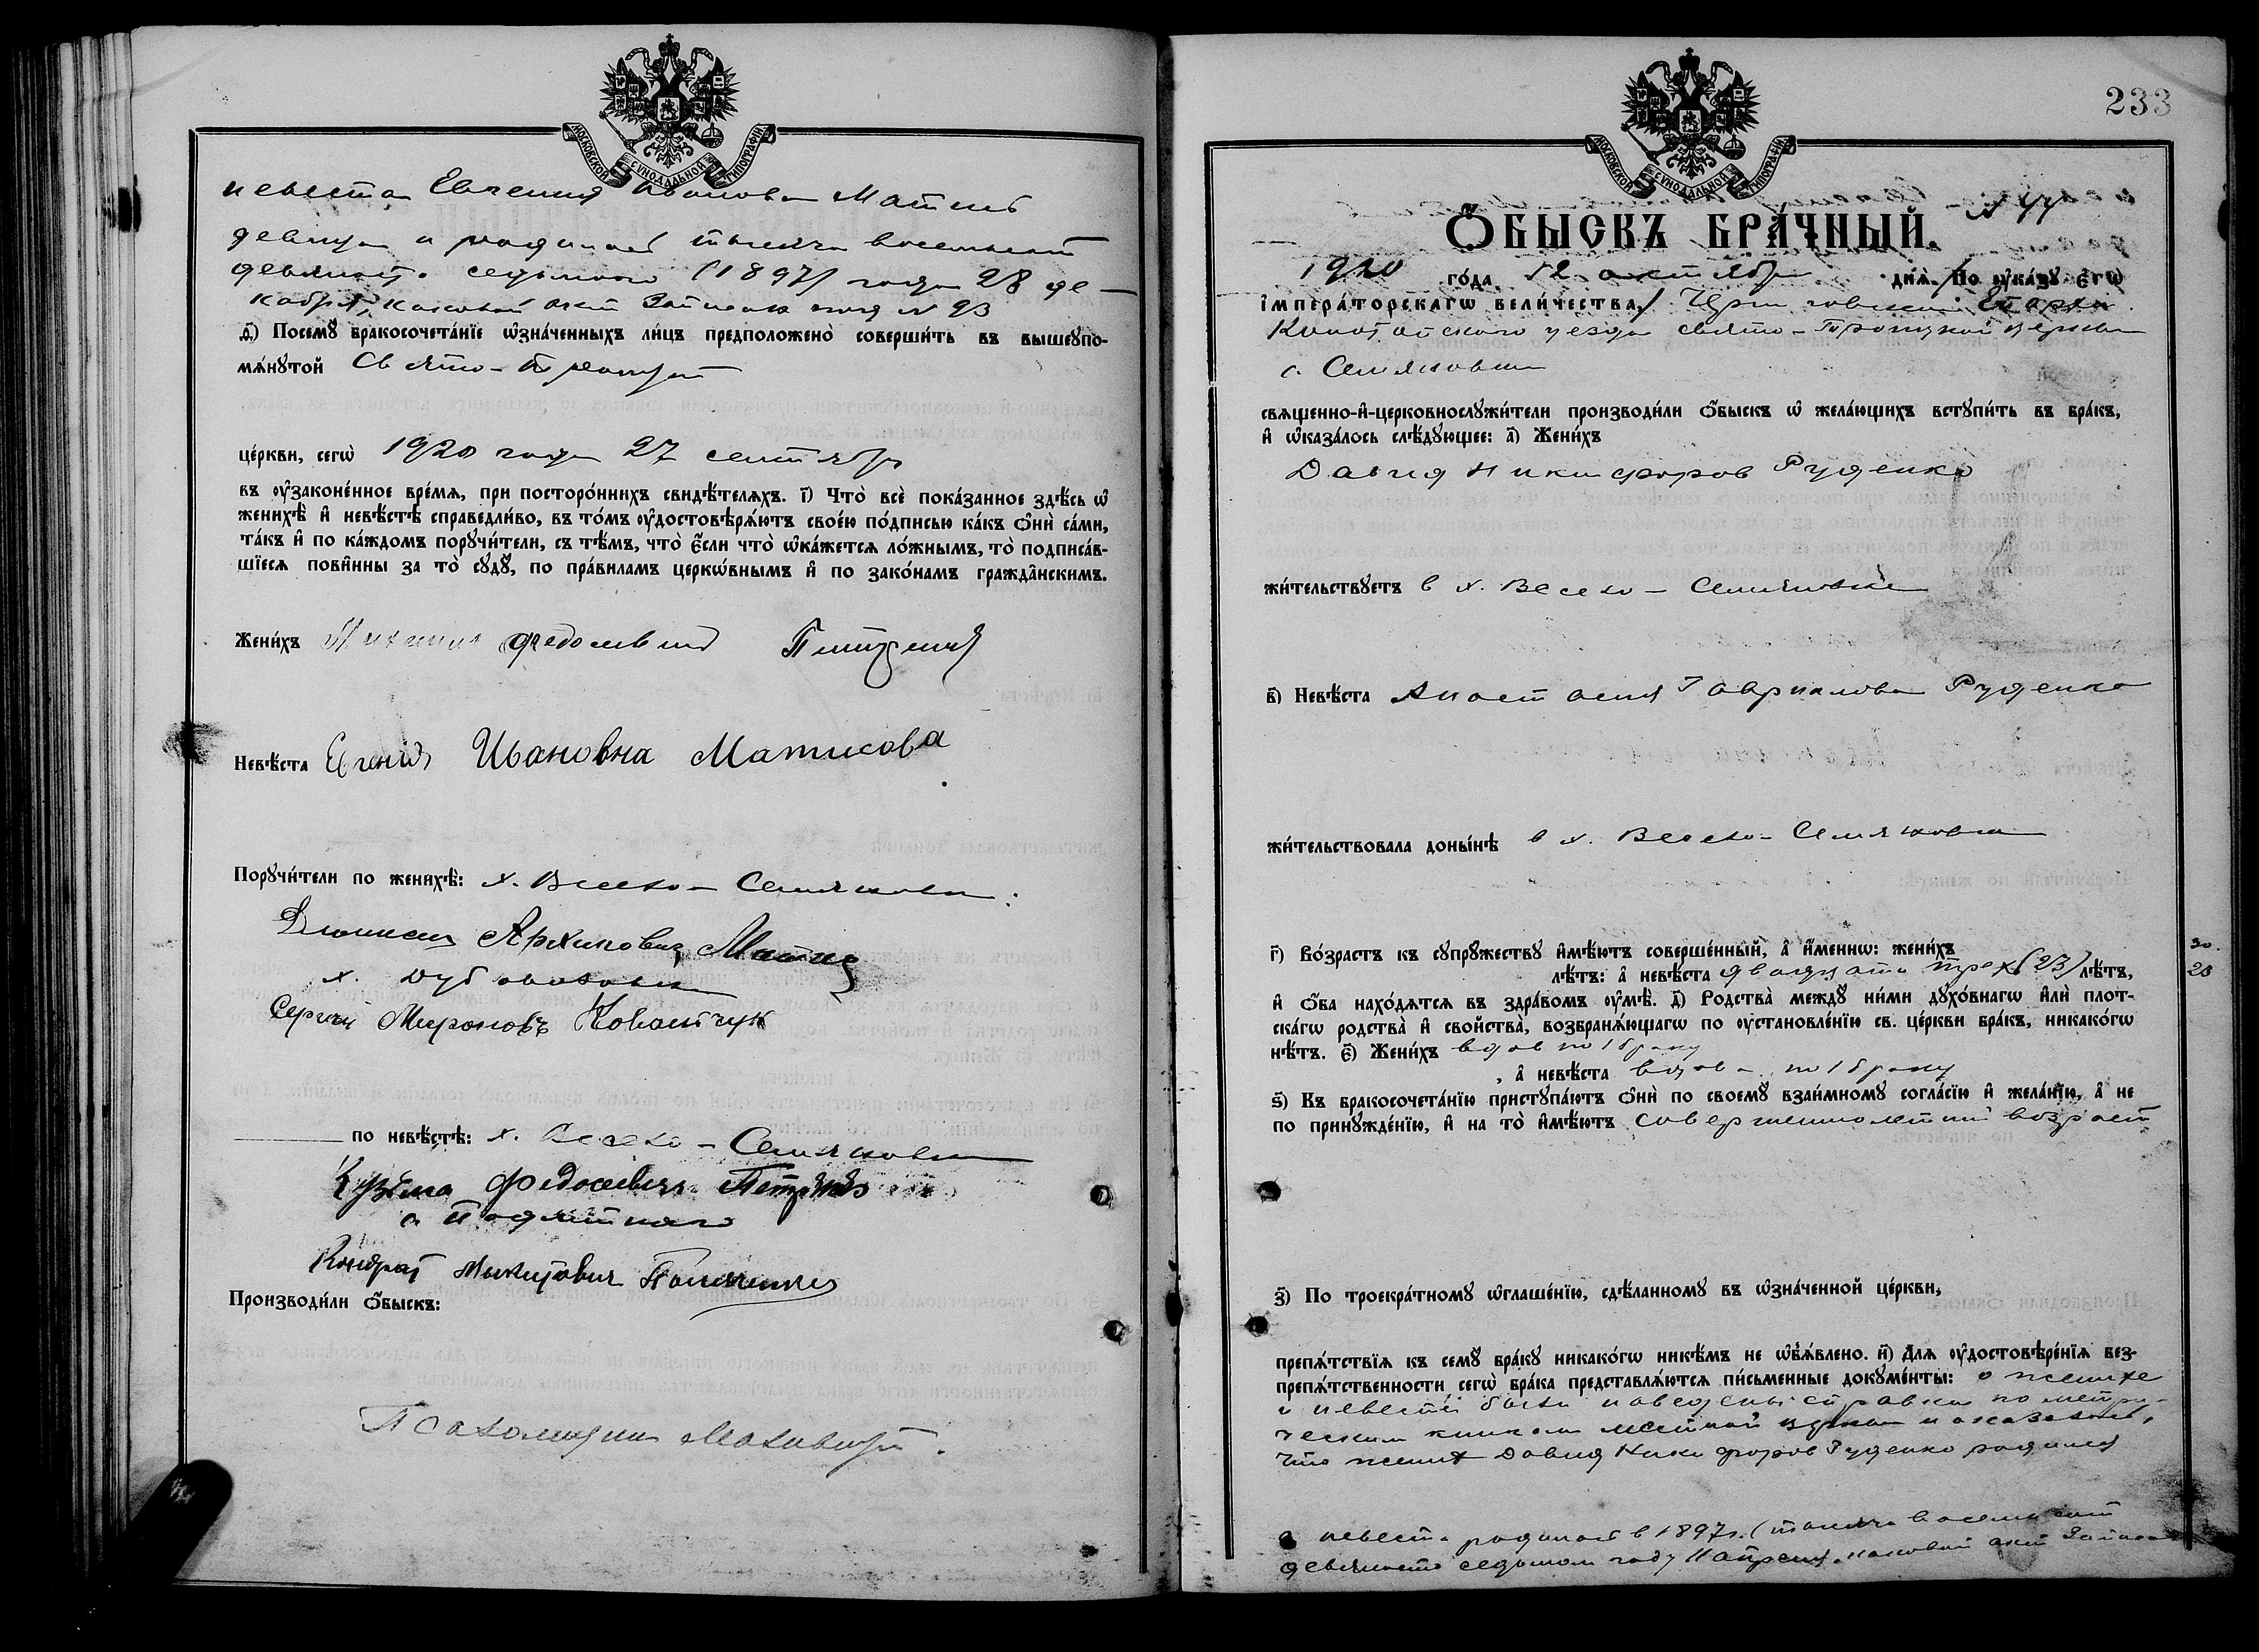 МОСКОВСКОЙ СѴНОДАЛЬНОЙ ТИПОГРАФІИ
невеста Евгения Иванова Матиев
девица и родилась тысяча восемьсот
девяносто седьмого (1897) года 28 де-
кабря, каковой акт записан под N 93
д҃) Посемꙋ̀ бракосочета́нїе ѡ҆зна́ченныхъ ли́цъ предположено̀ соверши́ть въ вышеꙋпо-
мѧ́нꙋтой Свято-Троицкой
це́ркви, сегѡ̀ 1920 года 27 сентября
въ ᲂу҆зако́ненное вре́мѧ, при посторо́ннихъ свидѣ́телѧхъ. і҃) Что̀ всѐ пока́занное здѣ́сь ѡ҆
женихѣ̀ и҆ невѣ́стѣ справедли́во, въ то́мъ ᲂу҆достовѣрѧ́ютъ свое́ю по́дписью ка́къ ѻ҆нѝ са́ми,
та́къ и҆ по ка́ждомъ порꙋчи́тели, съ тѣ́мъ, что̀ є҆́сли что̀ ѡ҆ка́жетсѧ ло́жнымъ, то̀ подписа́в-
шїесѧ пови́нны за то̀ сꙋдꙋ̀, по пра́виламъ церкѡ́внымъ и҆ по зако́намъ гражда̑нскимъ.
Жени́хъ Михаил Федосиевич
Невѣ́ста Евгения Ивановна Матисова
Порꙋчи́тели по женихѣ̀: х. Весело-Семяновки:
Дионисий Архипович
х. Дубовов
Сергий Мироновъ Ковальчук
по невѣ́стѣ: х. Весело-Семяновки
Кузьма Федосиевич
с.
Кондрат Никитович
Производи́ли ѻ҆́быскъ:
Псаломщик
233
МОСКОВСКОЙ СѴНОДАЛЬНОЙ ТИПОГРАФІИ
N 44
Ѻ҆́БЫСКЪ БРА́ЧНЫЙ.
1920 го́да 12 октября днѧ̀. / По ᲂу҆ка́зꙋ Є҆гѡ̀
І҆мпера́торскагѡ вели́чества, / Черниговской Епархии
Конотопского уезда свято-Троицкой церкви
с. Семяновки
свѧще́нно-и҆-церковнослꙋжи́тели производи́ли ѻ҆́быскъ ѡ҆ жела́ющихъ встꙋпи́ть въ бра́къ,
и҆ ѡ҆каза́лось слѣ́дꙋющее: а҃) Жени́хъ
Давид Никифоров Руденко
жи́тельствꙋетъ в х. Весело-Семяновке
в҃) Невѣ́ста Анастасия Гаврилова Руденко
жи́тельствовала доны́нѣ в х. Весело-Семяновки
г҃) Во́зрастъ къ сꙋпрꙋ́жествꙋ и҆мѣ́ютъ соверше́нный, а҆ и҆́меннѡ: жени́хъ
30.
лѣ́тъ: а҆ невѣ́ста двадцати трех (23) лѣ́тъ,
23
и҆ ѻ҆́ба нахо́дѧтсѧ въ здра́вомъ ᲂу҆мѣ̀. д҃) Родства̀ междꙋ̀ ни́ми дꙋхо́внагѡ и҆лѝ плот-
ска́гѡ родства̀ и҆ сво́йства̀, возбранѧ́ющагѡ по ᲂу҆становле́нїю св. це́ркви бра́къ, никако́гѡ
нѣ́тъ. є҃) Жени́хъ вдов по 1 браку
, а҆ невѣ́ста вдова по 1 браку
ѕ҃) Къ бракосочета́нїю пристꙋпа́ютъ ѻ҆нѝ по своемꙋ̀ взаи́мномꙋ согла́сїю и҆ жела́нїю, а҆ не
по принꙋжде́нїю, и҆ на то̀ и҆мѣ́ютъ совершеннолетний возраст
з҃) По троекра́тномꙋ ѡ҆глаше́нїю, сдѣ́ланномꙋ въ ѡ҆зна́ченной це́ркви,
препѧ́тствїѧ къ семꙋ̀ бра́кꙋ никако́гѡ никѣ́мъ не ѡ҆б̾ѧ́влено. и҃) Длѧ ᲂу҆достовѣре́нїѧ без-
препѧ́тственности сегѡ̀ бра́ка представлѧ́ютсѧ пи́сьменные докꙋме́нты: о женихе
и невесте были наведены справки по метри-
ческим книгам местной церкви и оказалось,
что жених Давид Никифоров Руденко родился
а невеста родилась в 1897 г. (тысяча восемьсот
девяносто седьмом году 11 апреля, каковой акт записан